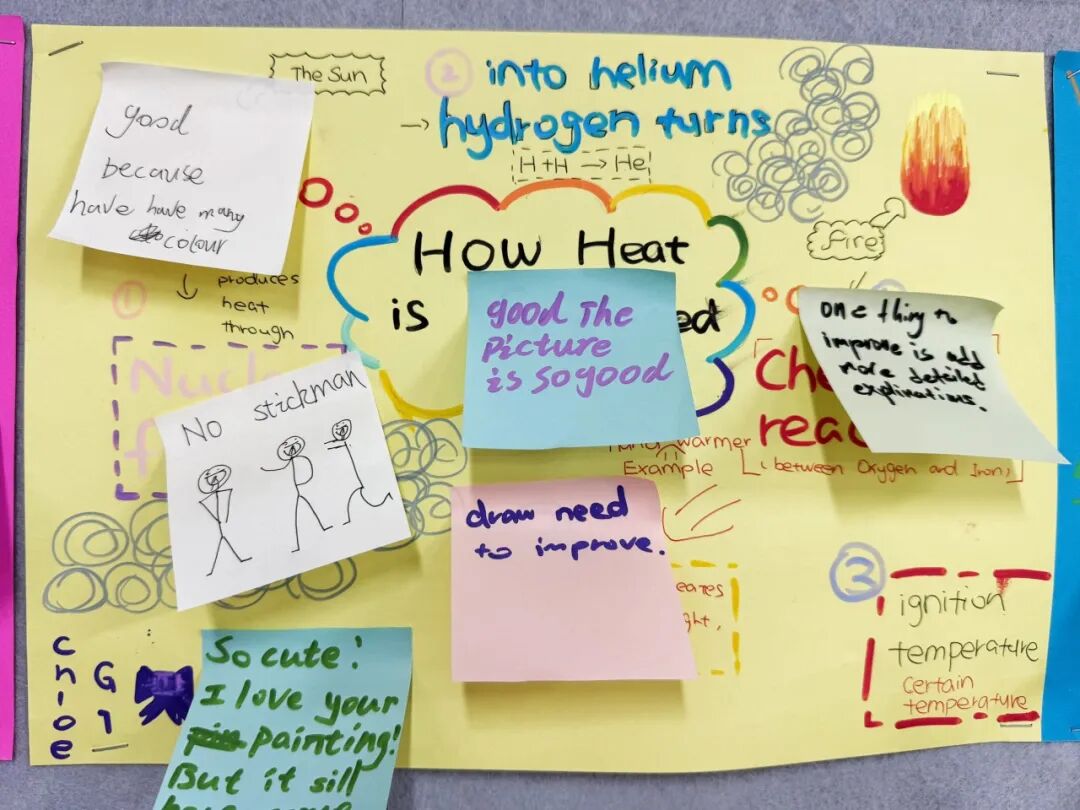 The Sun
2
into helium
→ hydrogen turns
H+H → He
good
because
have have many
colour
produces
heat
through
1
Fire
How Heat
is
ed
good The
picture
is so good
one thing to
improve is add
more detailed
explinations.
No stickman
warmer
Example
(between Oxygen and Iron)
draw need
to improve.
3
ignition
temperature
certain
temperature
Chloe
G1
So cute!
I love your
painting!
But it sill